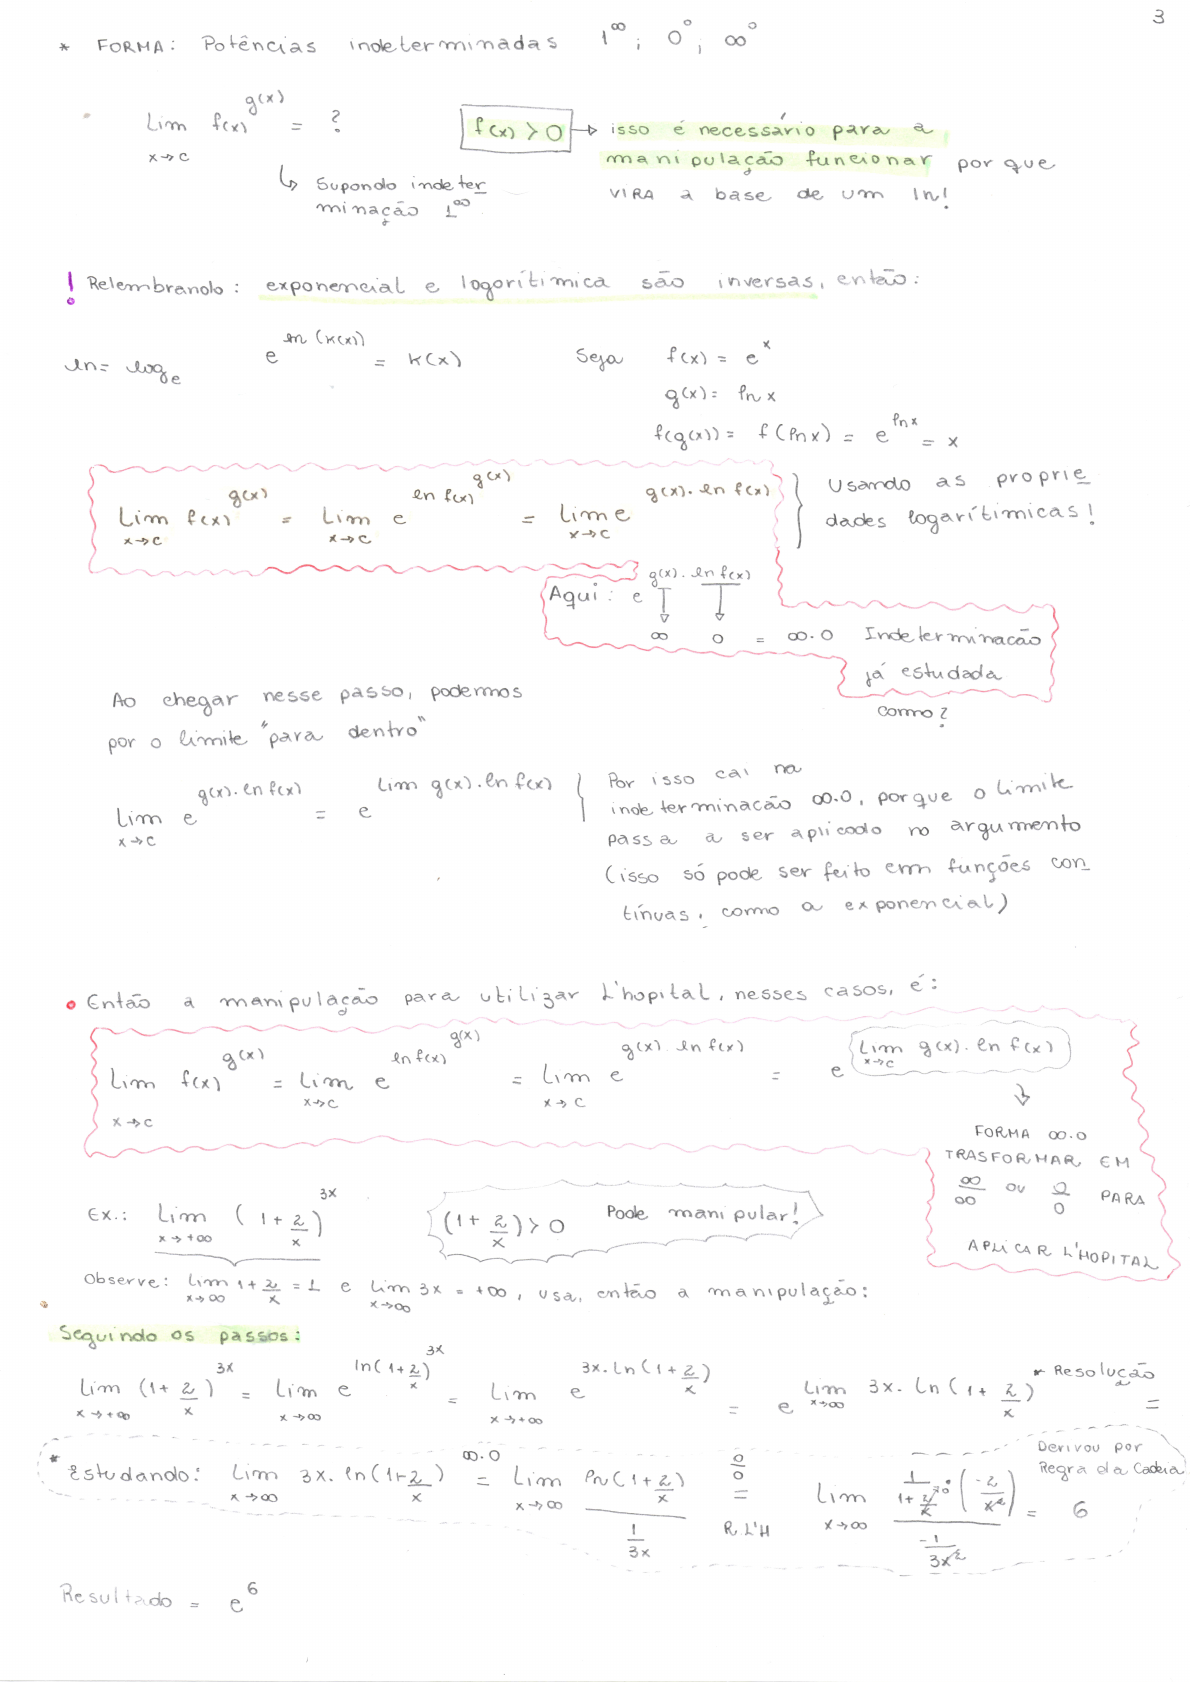 3
* FORMA: Potências indeterminadas 1^∞ ; 0^0 ; ∞^0
Lim f(x)^g(x) = ?
x→c
↳ Supondo indeter
minação 1^∞
f(x) > 0 → isso é necessário para a
manipulação funcionar por que
VIRA a base de um ln!
! Relembrando: exponencial e logorítimica são inversas, então:
ln = log_e
e^ln(k(x)) = k(x)
Seja f(x) = e^x
g(x) = ln x
f(g(x)) = f(ln x) = e^ln x = x
Lim f(x)^g(x) = Lim e^ln f(x)^g(x) = Lim e^g(x).ln f(x)
x→c x→c x→c
Usando as proprie
dades logarítimicas!
Aqui: e^g(x).ln f(x)
∞ 0 = ∞.0 Indeterminacão
já estudada
como?
Ao chegar nesse passo, podermos
por o limite "para dentro"
Lim e^g(x).ln f(x) = e^Lim g(x).ln f(x)
x→c
Por isso cai na
indeterminacão ∞.0, porque o limite
passa a ser aplicado no argumento
(isso só pode ser feito em funções con
tínuas, como a exponencial)
• Então a manipulação para utilizar L'hopital, nesses casos, é:
Lim f(x)^g(x) = Lim e^ln f(x)^g(x) = Lim e^g(x).ln f(x) = e^Lim g(x).ln f(x)
x→c x→c x→c x→c
FORMA ∞.0
TRASFORMAR EM
∞/∞ OU 0/0 PARA
APLICAR L'HOPITAL
Ex.: Lim (1 + 2/x)^3x
x→+∞
(1 + 2/x) > 0 Pode manipular!
Observe: Lim 1 + 2/x = 1 e Lim 3x = +∞, usa, então a manipulação:
x→∞ x→∞
Seguindo os passos:
Lim (1 + 2/x)^3x = Lim e^ln(1 + 2/x)^3x = Lim e^3x.ln(1 + 2/x) = e^Lim 3x.ln(1 + 2/x) * Resolução =
x→+∞ x→∞ x→+∞ x→∞
* Estudando: Lim 3x.ln(1+2/x) ∞.0 = Lim ln(1 + 2/x) / (1/3x) 0/0 = R.L'H Lim (1/(1 + 2/x)→0 . (-2/x²)) / (-1/3x²) = 6
x→∞ x→∞ x→∞
Derivou por
Regra da Cadeia
Resultado = e^6